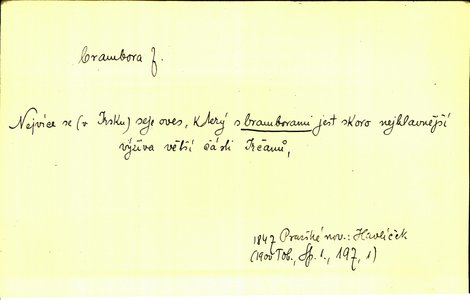 Brambora f.
Nejvíce se (v Irsku) seje oves, který s bramborami jest skoro nejhlavnější
výživa větší části Irčanů,
1847 Pražské nov.: Havlíček
(1900 Tob., Sp. 1., 197, 1)